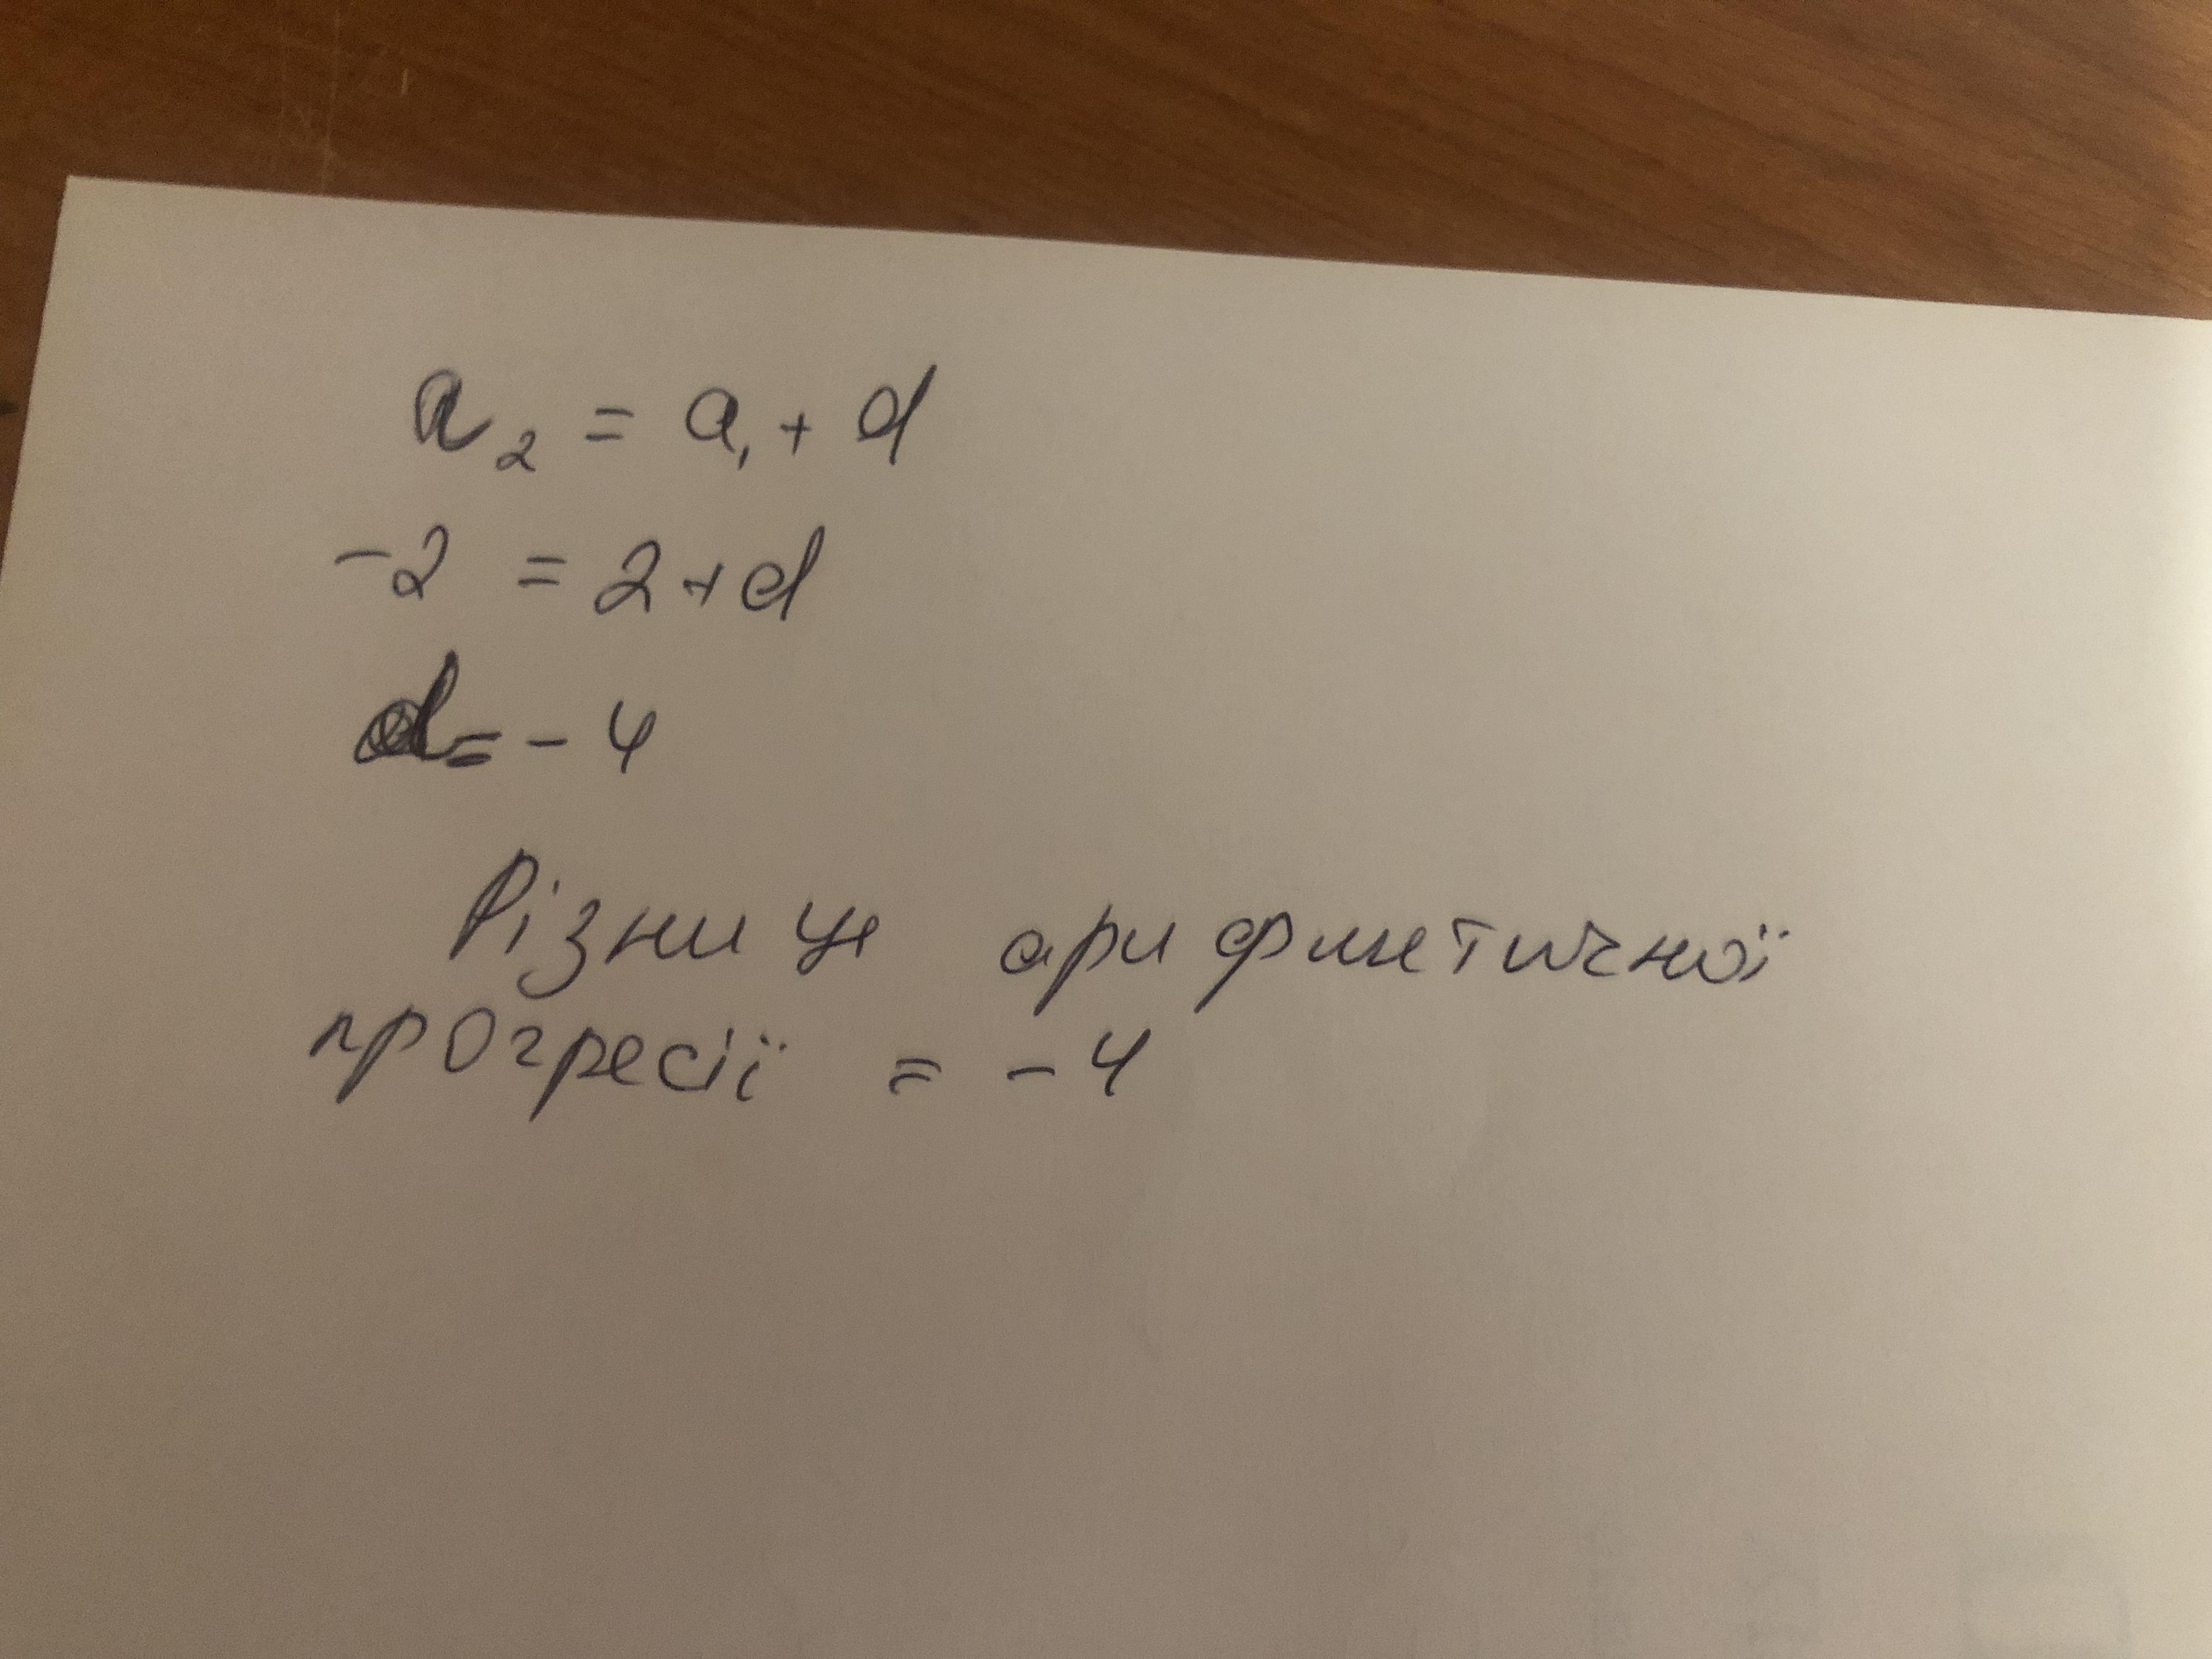 a₂ = a₁ + d
-2 = 2 + d
d = - 4
Різниця арифметичної
прогресії = - 4